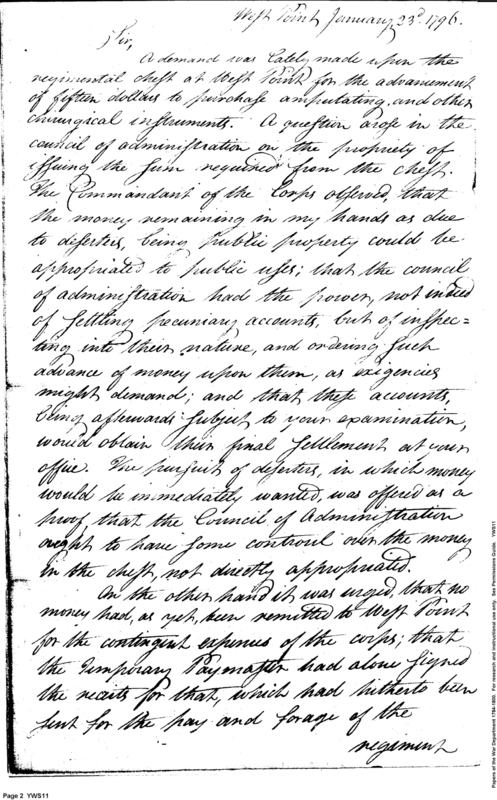 West Point January 23d. 1796.
Sir,
A demand was lately made upon the
regimental chest at West Point for the advancement
of fifteen dollars to purchase amputating, and other
chirurgical instruments. A question arose in the
council of administration on the propriety of
issuing the sum required from the chest.
The Commandant of the Corps observed, that
the money remaining in my hands as due
to deserters, being public property could be
appropriated to public uses; that the council
of administration had the power, not indeed
of settling pecuniary accounts, but of inspec=
ting into their nature, and ordering such
advance of money upon them, as exigencies
might demand; and that these accounts,
being afterwards subject to your examination,
would obtain their final settlement at your
office. The pursuit of deserters, in which money
would be immediately wanted, was offered as a
proof, that the Council of Administration
ought to have some controul over the money
in the chest, not directly appropriated.
On the other hand it was urged, that no
money had, as yet, been remitted to West Point
for the contingent expences of the corps; that
the temporary Paymaster had alone signed
the receits for that, which had hitherto been
sent for the pay and forage of the
regiment
Page 2 YWS11
Papers of the War Department 1784-1800. For research and instructional use only. See Permissions Guide. YWS11